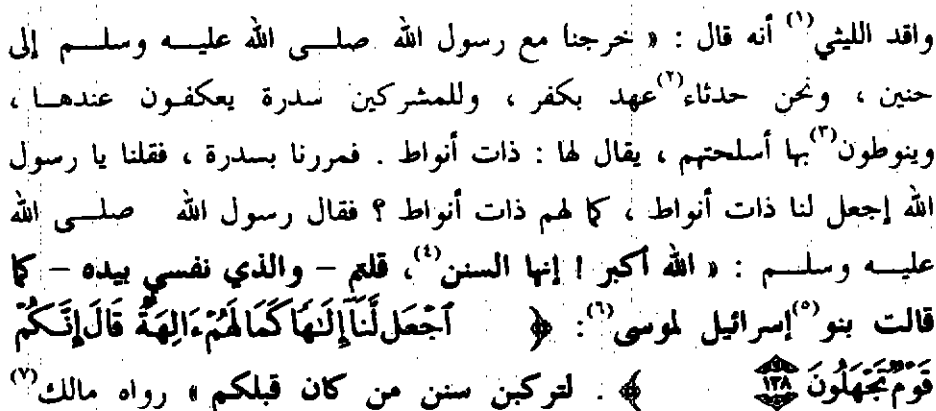 واقد الليثي(١) أنه قال : « خرجنا مع رسول الله صلى الله عليه وسلم إلى
حنين ، ونحن حدثاء(٢) عهد بكفر ، وللمشركين سدرة يعكفون عندها ،
وينوطون(٣) بها أسلحتهم ، يقال لها : ذات أنواط . فمررنا بسدرة ، فقلنا يا رسول
الله إجعل لنا ذات أنواط ، كما لهم ذات أنواط ؟ فقال رسول الله صلى الله
عليه وسلم : « الله أكبر ! إنها السنن(٤)، قلتم – والذي نفسي بيده – كما
قالت بنو(٥) إسرائيل لموسى(٦): ﴿ ٱجْعَل لَّنَآ إِلَٰهًا كَمَا لَهُمْ ءَالِهَةٌ قَالَ إِنَّكُمْ
قَوْمٌ تَجْهَلُونَ ١٣٨ ﴾ . لتركبن سنن من كان قبلكم » رواه مالك(٧)